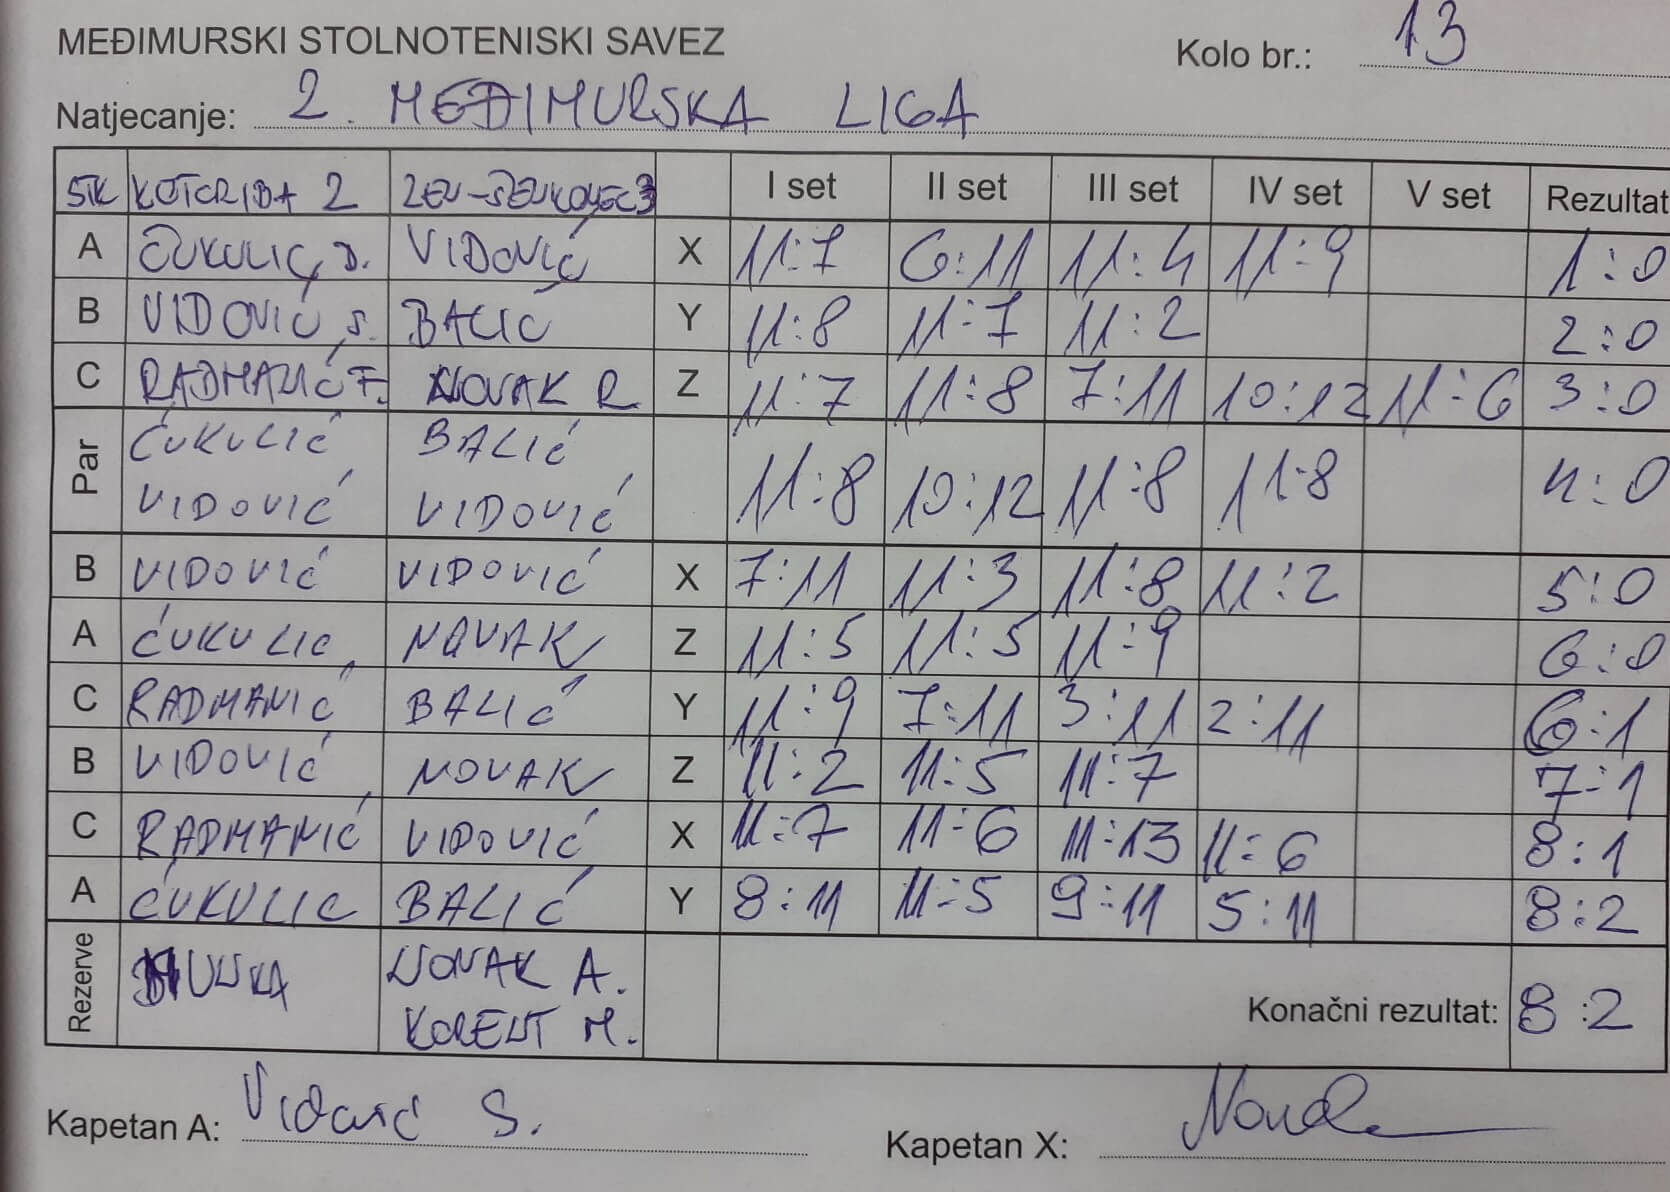 MEĐIMURSKI STOLNOTENISKI SAVEZ
Kolo br.: 13
Natjecanje: 2. MEĐIMURSKA LIGA
STK KOTORIBA 2 I set II set III set IV set V set Rezultat
A ĆUKULIĆ, D. VIDOVIĆ X 11:7 6:11 11:4 11:9 1:0
B VIDOVIĆ, S. BALIĆ Y 11:8 11:7 11:2 2:0
C RADMANIĆ F. NOVAK R Z 11:7 11:8 7:11 10:12 11:6 3:0
Par
ĆUKULIĆ BALIĆ
VIDOVIĆ VIDOVIĆ
11:8 10:12 11:8 11:8 4:0
B VIDOVIĆ VIDOVIĆ X 7:11 11:3 11:8 11:2 5:0
A ĆUKULIC NOVAK Z 11:5 11:5 11:9 6:0
C RADMANIĆ BALIĆ Y 11:9 7:11 3:11 2:11 6:1
B VIDOVIĆ NOVAK Z 11:2 11:5 11:7 7:1
C RADMANIĆ VIDOVIĆ X 11:7 11:6 11:13 11:6 8:1
A ĆUKULIC BALIĆ Y 8:11 11:5 9:11 5:11 8:2
Rezerve
NOVAK A.
KORENT M.
Konačni rezultat: 8:2
Kapetan A: Vidović S.
Kapetan X: Novak